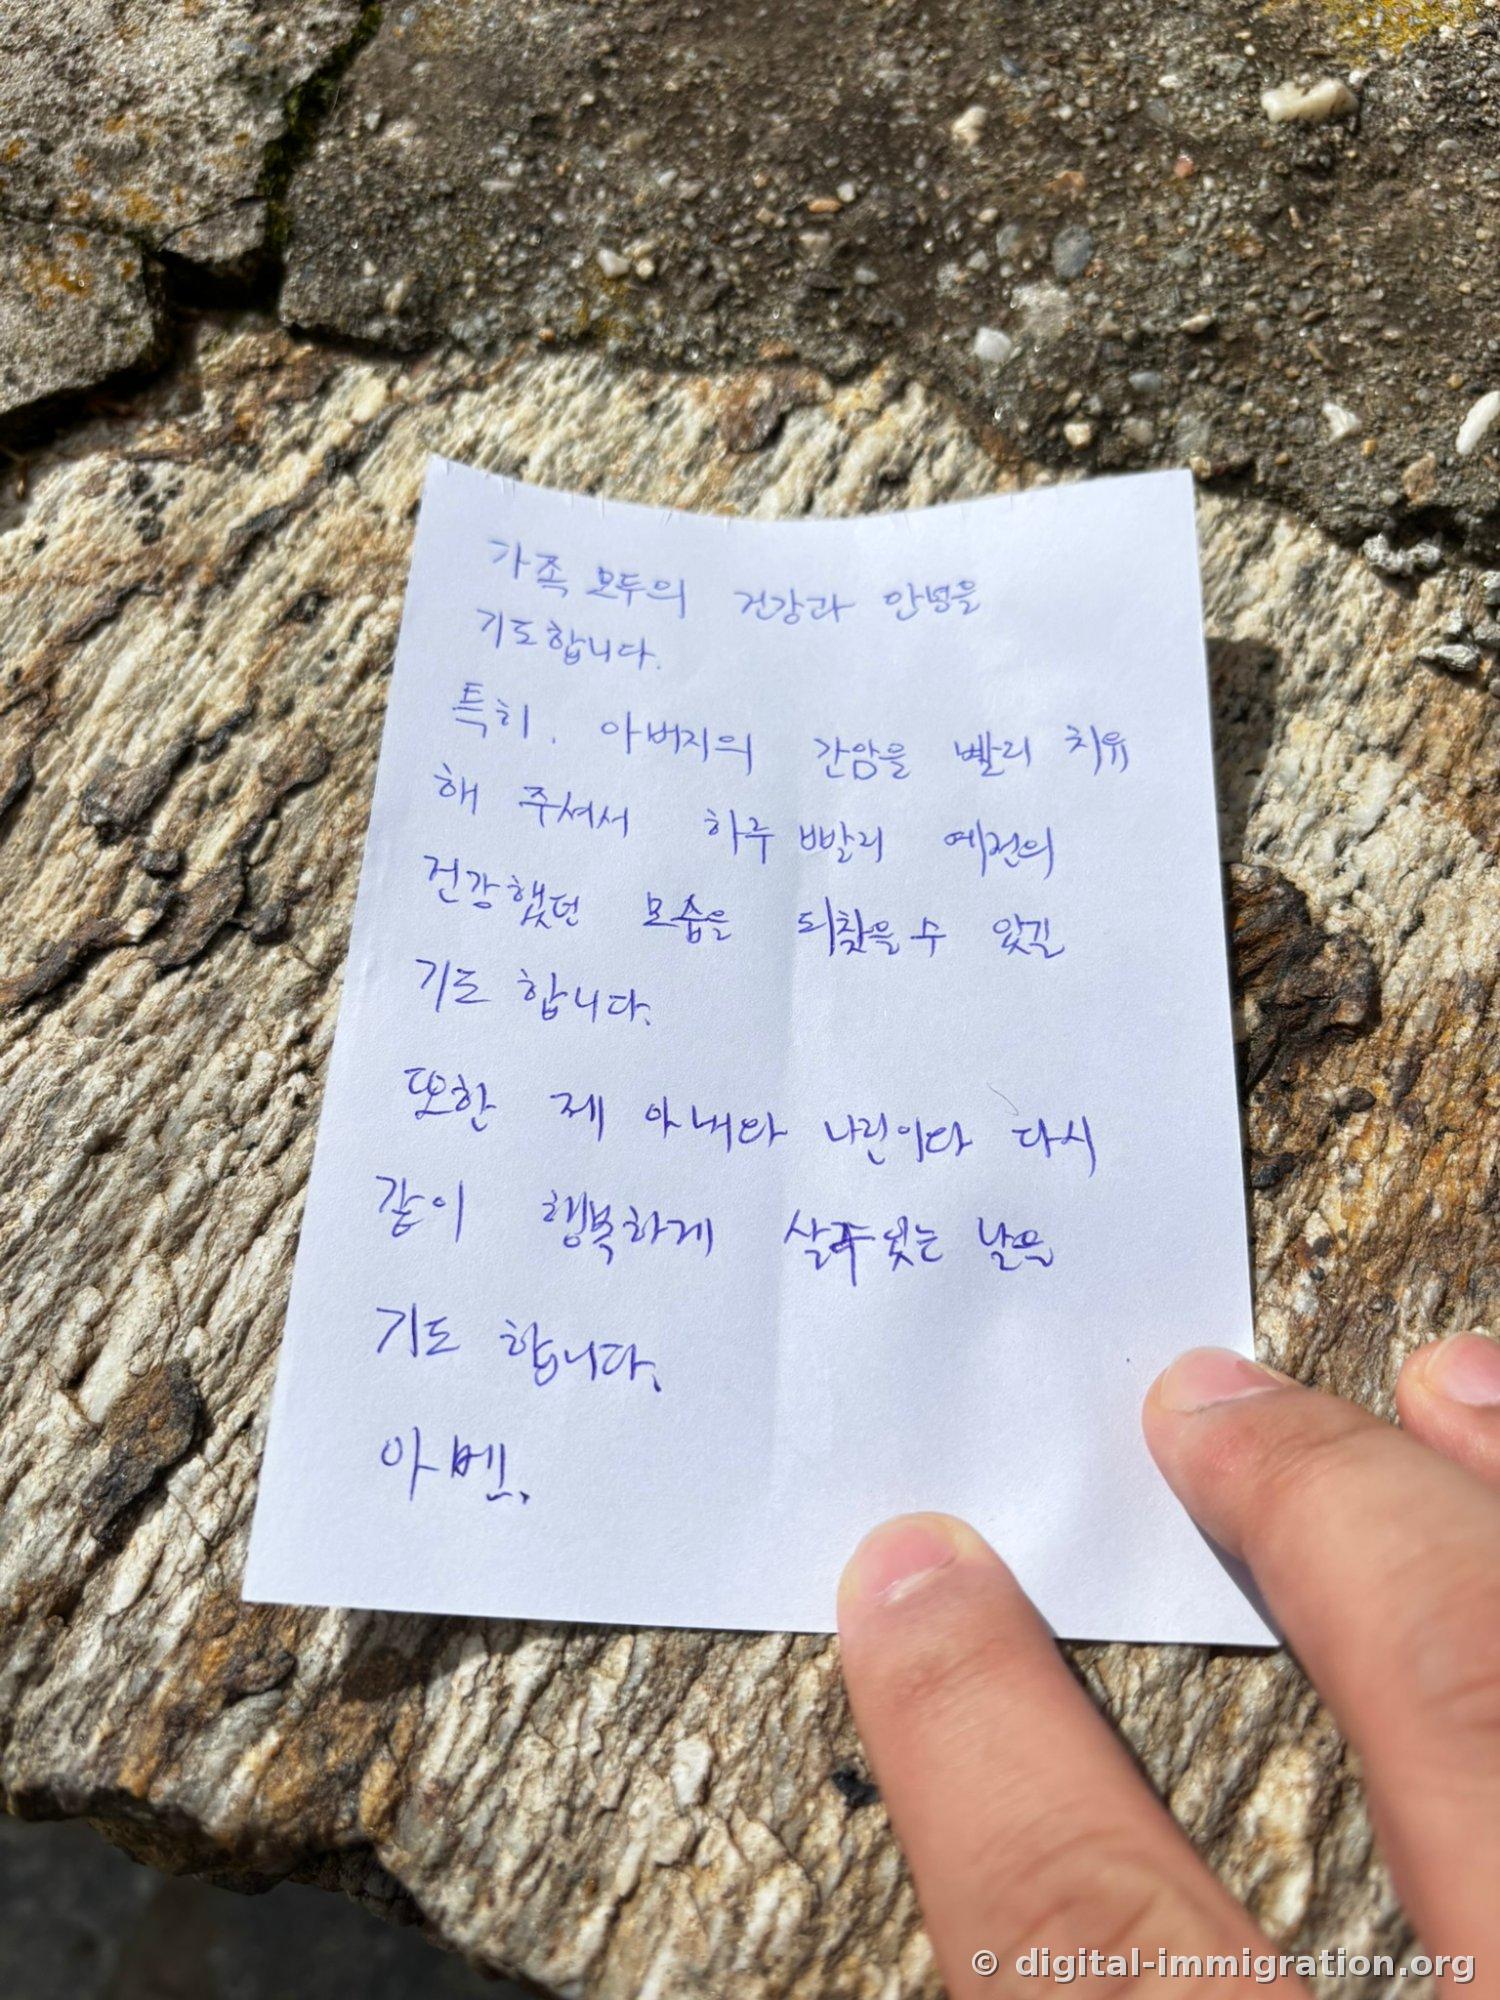 가족 모두의 건강과 안녕을
기도합니다.
특히, 아버지의 간암을 빨리 치유
해 주셔서 하루 빨리 예전의
건강했던 모습을 되찾을 수 있길
기도 합니다.
또한 제 아내와 나린이와 다시
같이 행복하게 살 수 있는 날을
기도 합니다.
아멘.
© digital-immigration.org